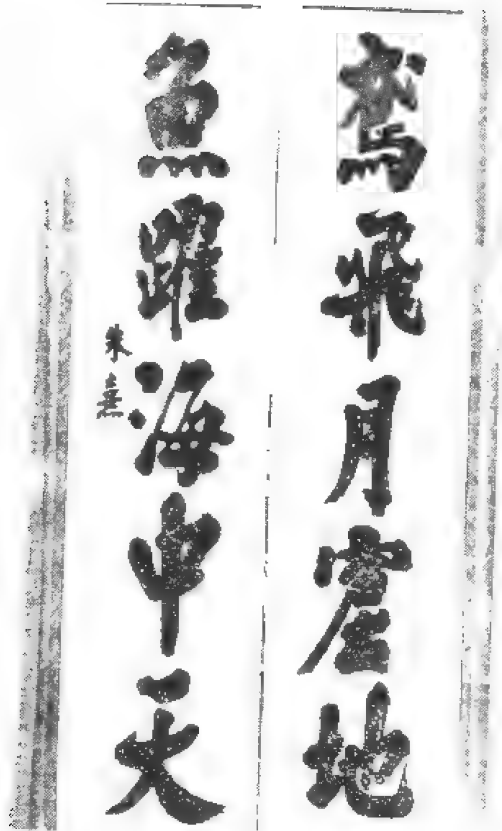 鳶飛月窟地
魚躍海中天
朱熹